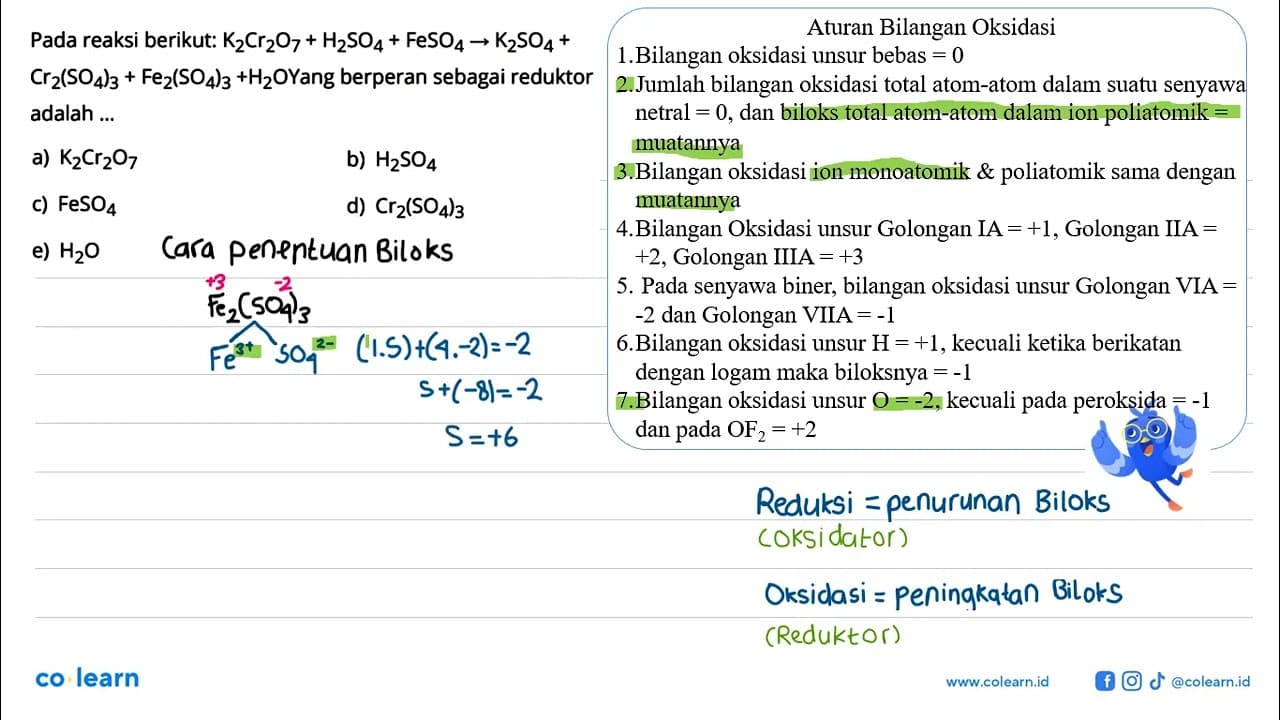 Pada reaksi berikut: K₂Cr₂O₇ + H₂SO₄ + FeSO₄ → K₂SO₄ +
Cr₂(SO₄)₃ + Fe₂(SO₄)₃ +H₂OYang berperan sebagai reduktor
adalah ...
a) K₂Cr₂O₇
b) H₂SO₄
c) FeSO₄
d) Cr₂(SO₄)₃
e) H₂O
Cara penentuan Biloks
+3 -2
Fe₂(SO₄)₃
Fe³⁺ SO₄²⁻ (1.S)+(4.-2)=-2
S+(-8)=-2
S=+6
Aturan Bilangan Oksidasi
1.Bilangan oksidasi unsur bebas = 0
2.Jumlah bilangan oksidasi total atom-atom dalam suatu senyawa
netral = 0, dan biloks total atom-atom dalam ion poliatomik =
muatannya
3.Bilangan oksidasi ion monoatomik & poliatomik sama dengan
muatannya
4.Bilangan Oksidasi unsur Golongan IA = +1, Golongan IIA =
+2, Golongan IIIA = +3
5. Pada senyawa biner, bilangan oksidasi unsur Golongan VIA =
-2 dan Golongan VIIA = -1
6.Bilangan oksidasi unsur H = +1, kecuali ketika berikatan
dengan logam maka biloksnya = -1
7.Bilangan oksidasi unsur O = -2, kecuali pada peroksida = -1
dan pada OF₂ = +2
Reduksi = penurunan Biloks
(Oksidator)
Oksidasi = peningkatan Biloks
(Reduktor)
co learn
www.colearn.id
@colearn.id